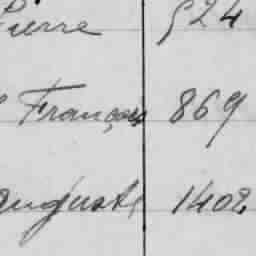 Pierre 524
François 869
Auguste 1402